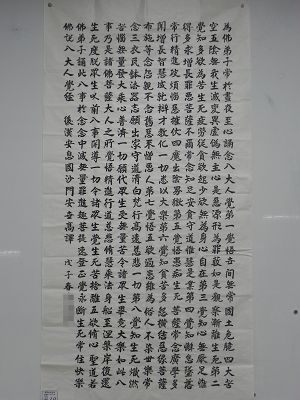 為佛弟子常於晝夜至心誦念八大人覺第一覺悟世間無常國土危脆四大苦
空五陰無我生滅變異虛偽無主心是惡源形為罪藪如是觀察漸離生死第二
覺知多欲為苦生死疲勞從貪欲起少欲無為身心自在第三覺知心無厭足惟
得多求增長罪惡菩薩不爾常念知足安貧守道惟慧是業第四覺知懈怠墜落
常行精進破煩惱惡摧伏四魔出陰界獄第五覺悟愚癡生死菩薩常念廣學多
聞增長智慧成就辯才教化一切悉以大樂第六覺知貧苦多怨橫結惡緣菩薩
布施等念怨親不念舊惡不憎惡人第七覺悟五欲過患雖為俗人不染世樂常
念三衣瓦缽法器志願出家守道清白梵行高遠慈悲一切第八覺知生死熾然
苦惱無量發大乘心普濟一切願代眾生受無量苦令諸眾生畢竟大樂如此八
事乃是諸佛菩薩大人之所覺悟精進行道慈悲修慧乘法身船至涅槃岸復還
生死度脫眾生以前八事開導一切令諸眾生覺生死苦捨離五欲修心聖道若
佛弟子誦此八事於念念中滅無量罪進趣菩提速登正覺永斷生死常住快樂
佛說八大人覺經 後漢安息國沙門安世高譯 戊子春